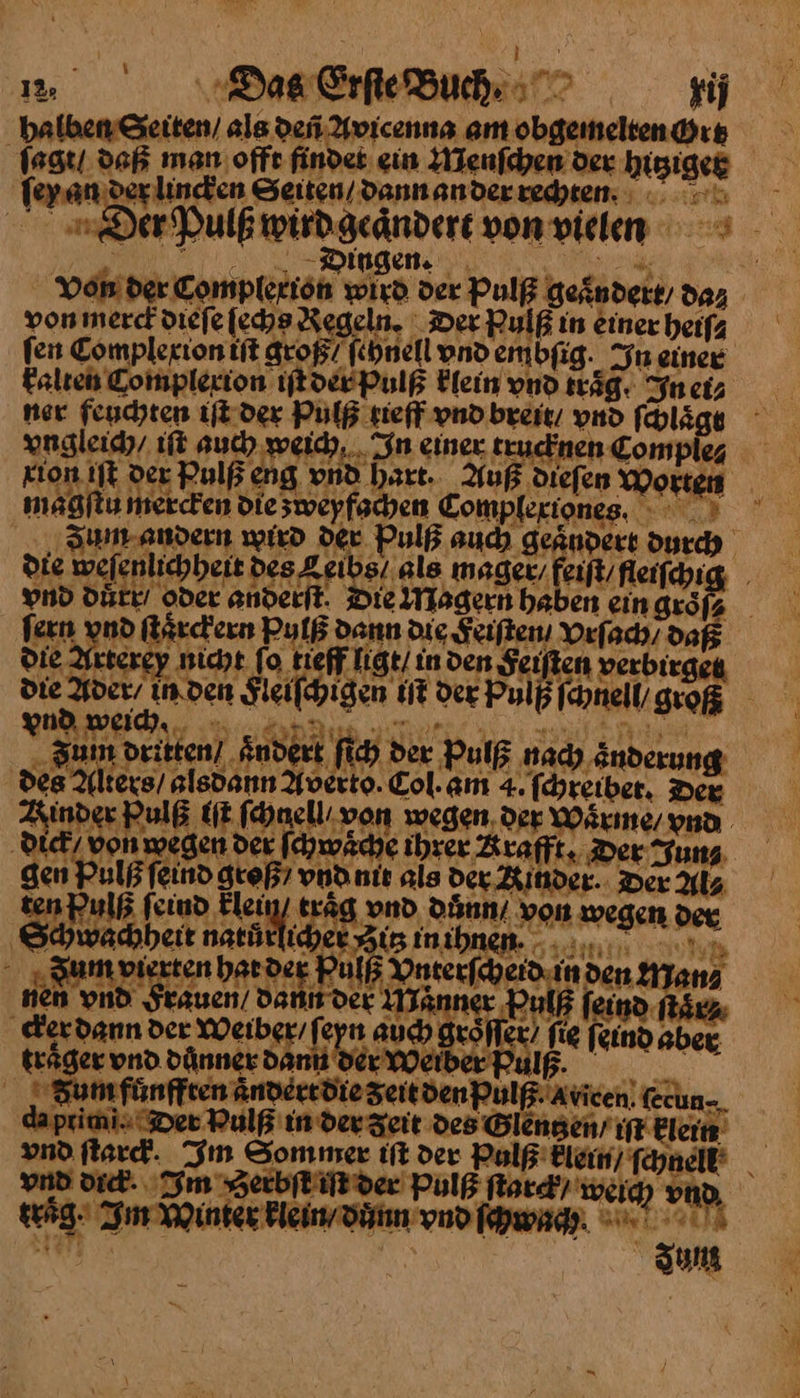 12. Das Erſte Buch. xij
halben Seiten/ als deñ Avicenna am obgemelten Ortz
ſagt/ daß man offt findet ein Menſchen der hitziger
ſey an der lincken Seiten/ dann an der rechten.
Der Pulß wird geaͤndert von vielen
Dingen.
Von der Complexion wird der Pulß geaͤndert/ da⸗
von merck dieſe ſechs Regeln. Der Pulß in einer heiſ⸗
ſen Complexion iſt groß/ ſchnell vnd embſig. In einer
kalten Complexion iſt der Pulß klein vnd traͤg. In ei⸗
ner feuchten iſt der Pulß tieff vnd breit/ vnd ſchlaͤgt
vngleich/ iſt auch weich. In einer trucknen Comple⸗
xion iſt der Pulß eng vnd hart. Auß dieſen Worten
magſtu mercken die zweyfachen Complexiones.
Zum andern wird der Pulß auch geaͤndert durch
die weſenlichheit des Leibs/ als mager/ feiſt/ fleiſchig
vnd duͤrr/ oder anderſt. Die Magern haben ein groͤſ⸗
ſern vnd ſtaͤrckern Pulß dann die Feiſten/ Vrſach/ daß
die Arterey nicht ſo tieff ligt/ in den Feiſten verbirget
die Ader/ in den Fleiſchigen iſt der Pulß ſchnell/ groß
vnd weich.
Zum dritten/ aͤndert ſich der Pulß nach aͤnderung
des Alters/ alsdann Averto. Col. am 4. ſchreibet. Der
Kinder Pulß iſt ſchnell/ von wegen der Waͤrme/ vnd
dick/ von wegen der ſchwaͤche ihrer Krafft. Der Jun⸗
gen Pulß ſeind groß/ vnd nit als der Kinder. Der Al⸗
ten Pulß ſeind klein/ traͤg vnd duͤnn/ von wegen der
Schwachheit natuͤrlicher Hitz in ihnen.
Zum vierten hat der Pulß Vnterſcheid in den Man⸗
nen vnd Frauen/ dann der Maͤnner Pulß ſeind ſtaͤr⸗
cker dann der Weiber/ ſeyn auch groͤſſer/ ſie ſeind aber
traͤger vnd duͤnner dann der Weiber Pulß.
Zum fuͤnfften aͤndert die Zeit den Pulß. Avicen. ſecun-
da primi. Der Pulß in der Zeit des Glentzen/ iſt klein
vnd ſtarck. Im Sommer iſt der Pulß klein/ ſchnell
vnd dick. Im Herbſt iſt der Pulß ſtarck/ weich vnd
traͤg. Im Winter klein/ duͤnn vnd ſchwach.
Zum